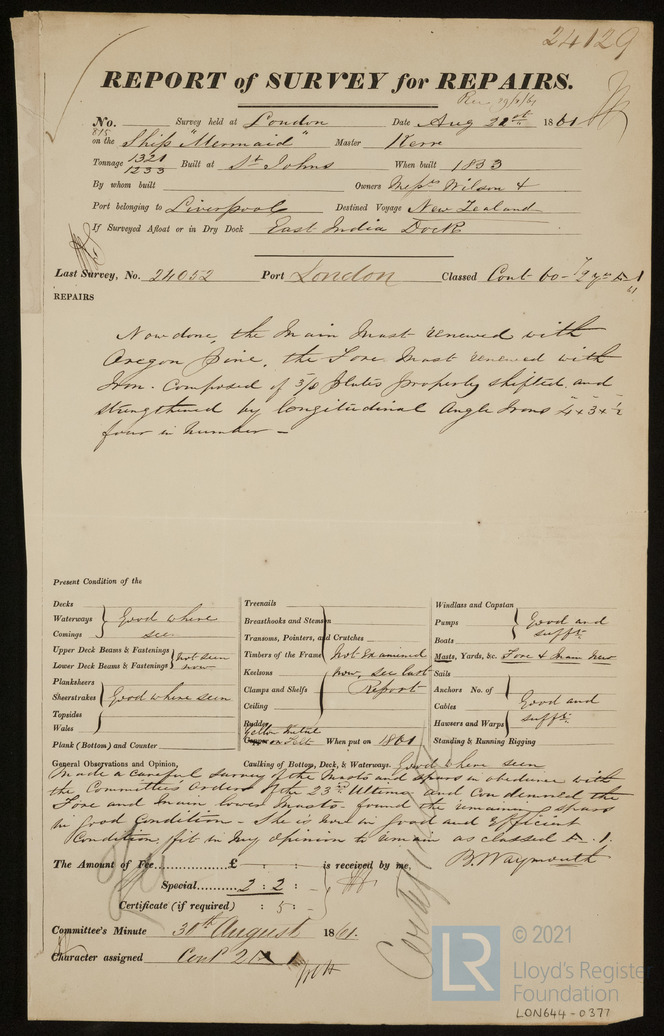 24129
REPORT of SURVEY for REPAIRS.
No. 815 Survey held at London Date Aug 22nd 1861
on the Ship "Mermaid" Master Kerr
Tonnage 1321 1233 Built at St Johns When built 1853
By whom built Owners Messrs Wilson &
Port belonging to Liverpool Destined Voyage New Zealand
If Surveyed Afloat or in Dry Dock East India Dock
Last Survey, No. 24052 Port London Classed Cont 60-
REPAIRS
Now done, the Main Mast renewed with
Oregon Pine, the Fore Mast renewed with
Iron. Composed of 3/8 plates properly shifted and
strengthened by longitudinal Angle Irons 4 x 3 x 1/2
four in number -
Present Condition of the
Decks
Waterways Good where
Comings seen
Upper Deck Beams & Fastenings not seen
Lower Deck Beams & Fastenings now
Planksheers
Sheerstrakes Good where seen
Topsides
Wales
Plank (Bottom) and Counter
Treenails
Breasthooks and Stemson
Transoms, Pointers, and Crutches
Timbers of the Frame Not Examined
Keelsons now, see last
Clamps and Shelfs Report
Ceiling
Rudder
Yellow Metal
Copper on Felt When put on 1861
Windlass and Capstan
Pumps Good and
Boats sufft.
Masts, Yards, &c. Fore & Main New
Sails
Anchors No. of
Cables Good and
Hawsers and Warps sufft.
Standing & Running Rigging
General Observations and Opinion, Caulking of Bottom, Deck, & Waterways. Good where seen
Made a careful survey of the Masts and spars in obedience with
the Committee's Orders of the 23rd Ultimo and Condemned the
Fore and Main lower Masts. found the remaining spars
in good Condition - She is now in good and Efficient
Condition, fit in my opinion to remain as classed Æ. 1.
The Amount of Fee £ : : is received by me, B. Waymouth
Special 2 : 2 :
Certificate (if required) : 5 :
Committee's Minute 30th August 1861.
Character assigned
© 2021
LR
Lloyd's Register
Foundation
LON644-0377